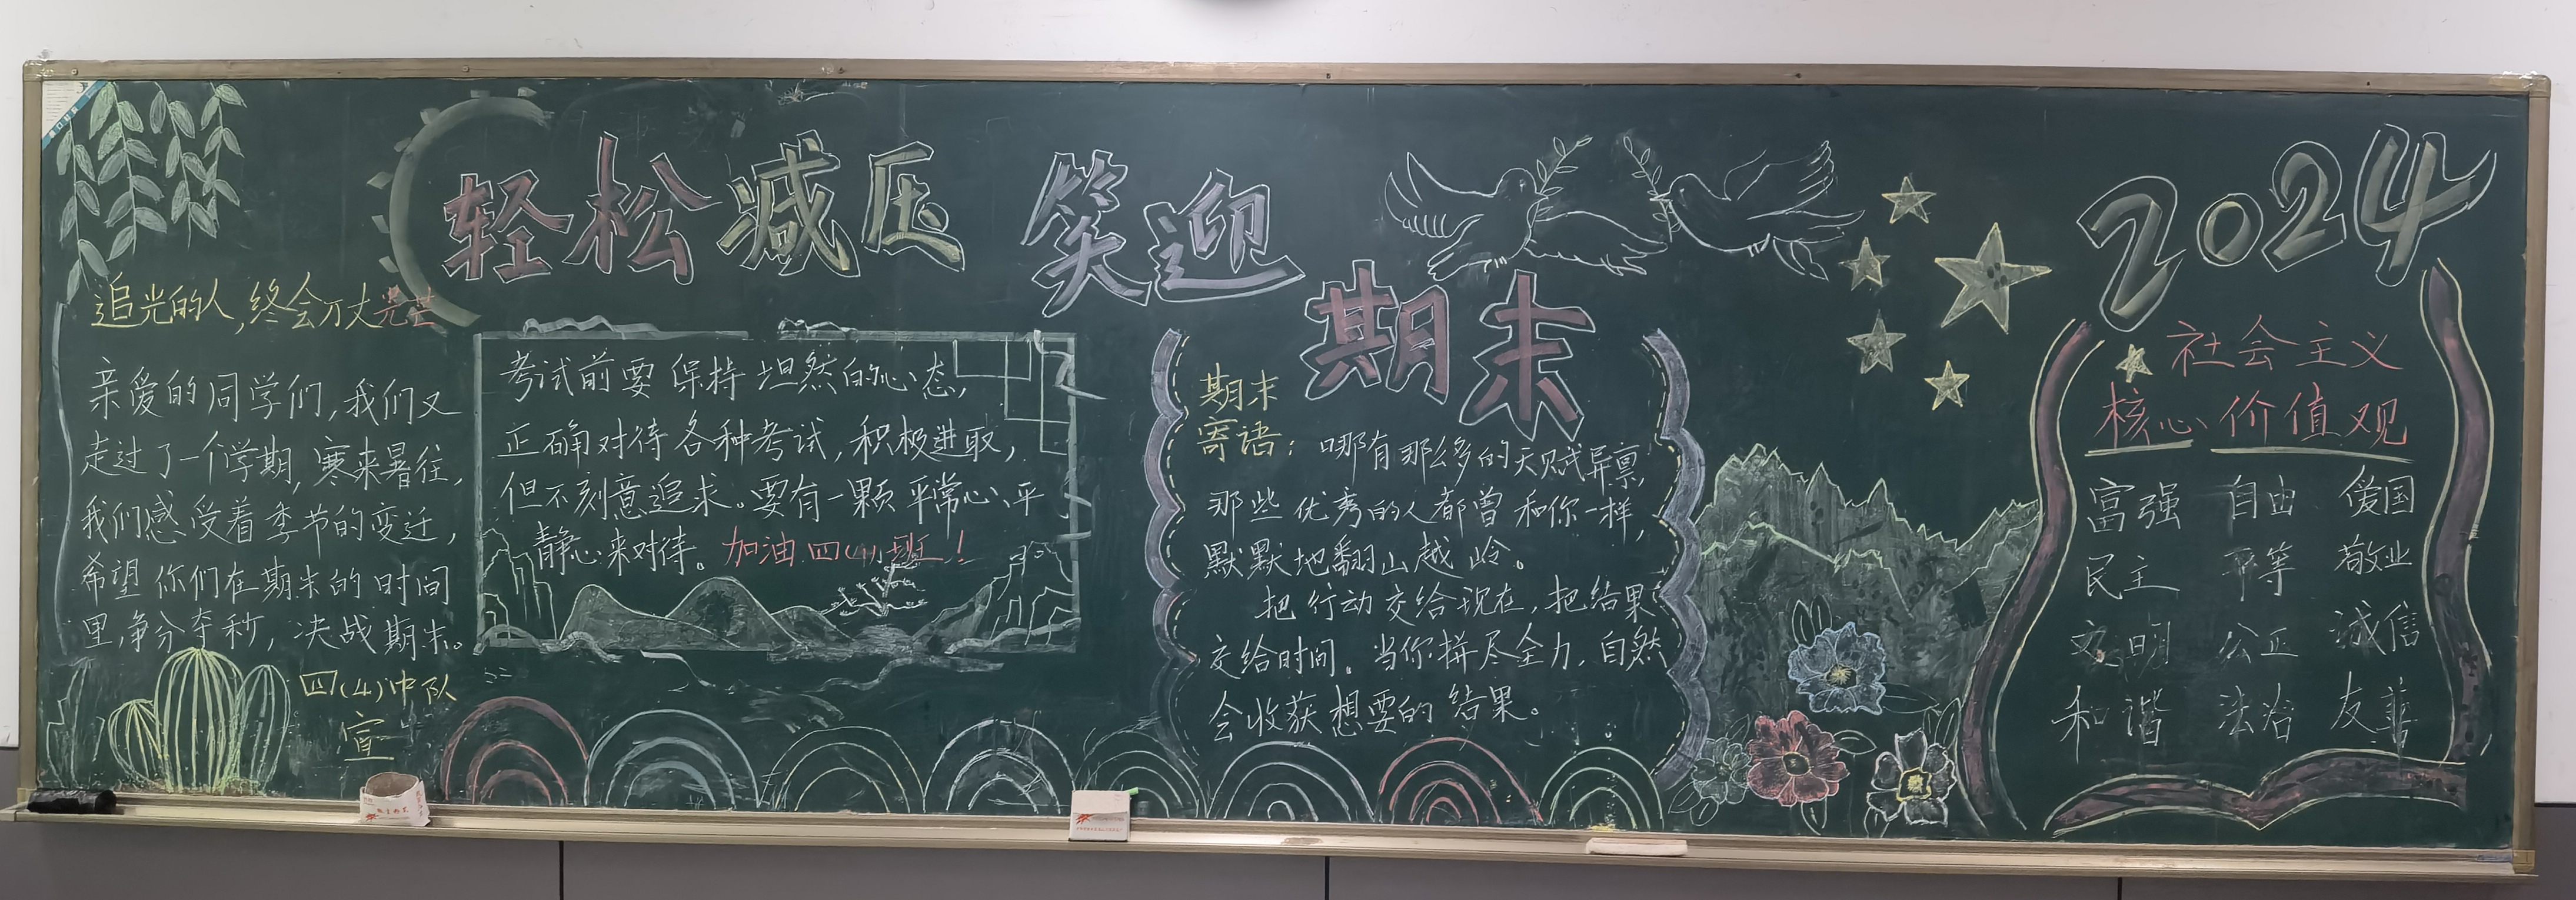 轻松减压 笑迎
期末
2024
追光的人,终会万丈光芒
亲爱的同学们,我们又
走过了一个学期,寒来暑往,
我们感受着季节的变迁,
希望你们在期末的时间
里,争分夺秒,决战期末。
四(4)中队
宣
考试前要保持坦然的心态,
正确对待各种考试,积极进取,
但不刻意追求。要有一颗平常心、平
静心来对待。加油四(4)班!
期末
寄语:哪有那么多的天赋异禀,
那些优秀的人都曾和你一样,
默默地翻山越岭。
把行动交给现在,把结果
交给时间。当你拼尽全力,自然
会收获想要的结果。
社会主义
核心价值观
富强 自由 爱国
民主 平等 敬业
文明 公正 诚信
和谐 法治 友善